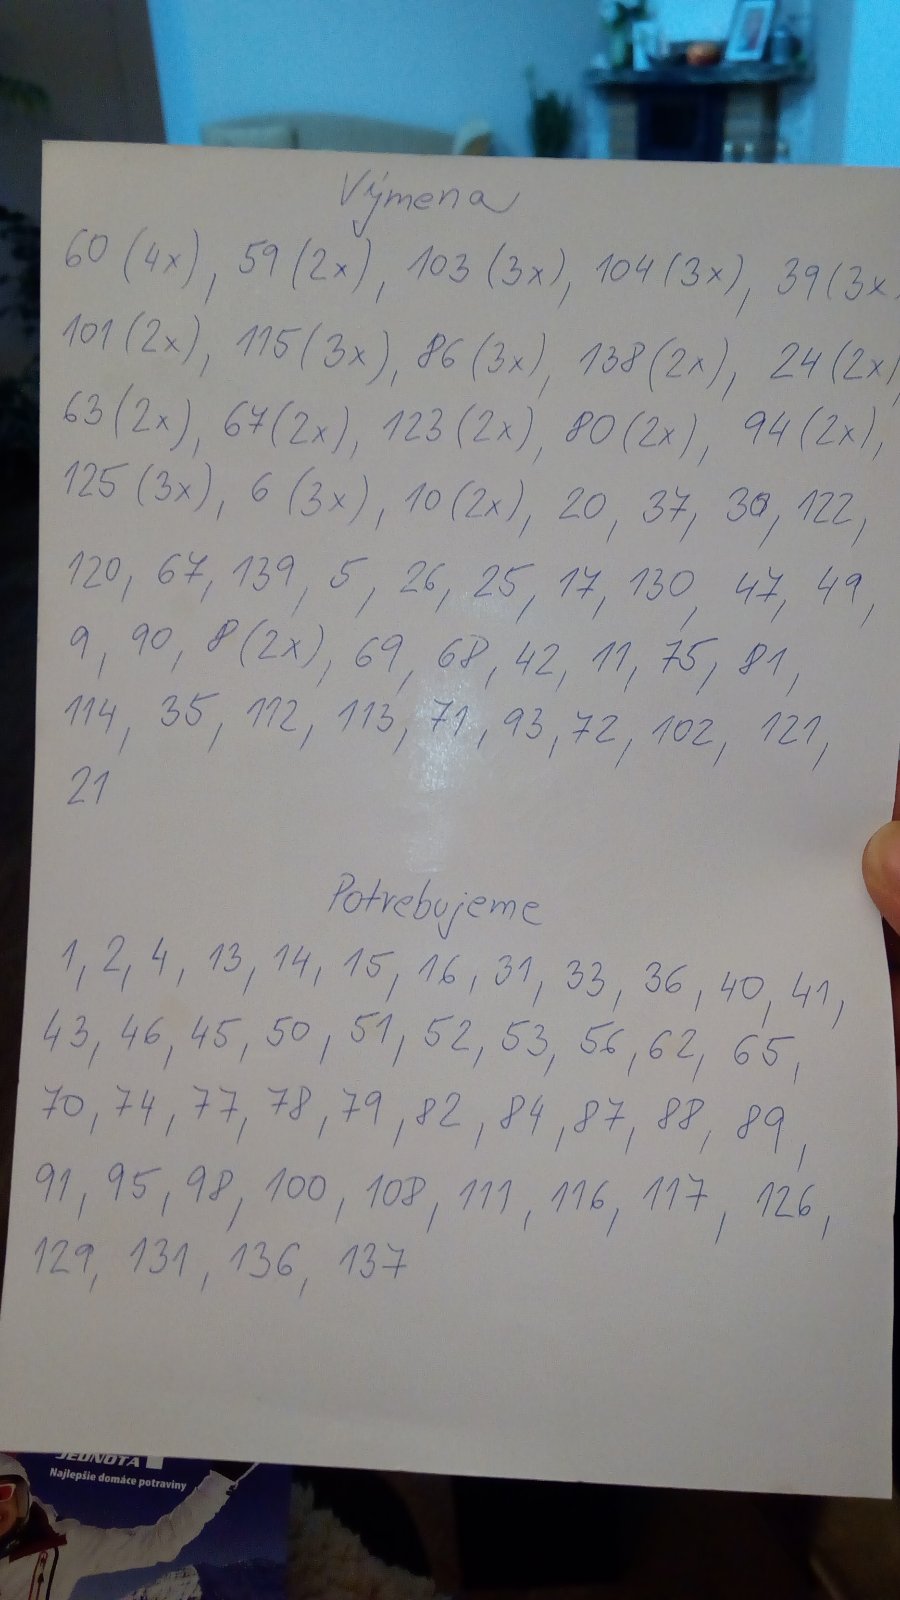 Výmena
60 (4x), 59 (2x), 103 (3x), 104 (3x), 39 (3x
101 (2x), 115 (3x), 86 (3x), 138 (2x), 24 (2x),
63 (2x), 67 (2x), 123 (2x), 80 (2x), 94 (2x),
125 (3x), 6 (3x), 10 (2x), 20, 37, 30, 122,
120, 67, 139, 5, 26, 25, 17, 130, 47, 49,
9, 90, 8 (2x), 69, 68, 42, 11, 75, 81,
114, 35, 112, 113, 71, 93, 72, 102, 121,
21
Potrebujeme
1, 2, 4, 13, 14, 15, 16, 31, 33, 36, 40, 41,
43, 46, 45, 50, 51, 52, 53, 56, 62, 65,
70, 74, 77, 78, 79, 82, 84, 87, 88, 89,
91, 95, 98, 100, 108, 111, 116, 117, 126,
129, 131, 136, 137
JEDNOTA
Najlepšie domáce potraviny